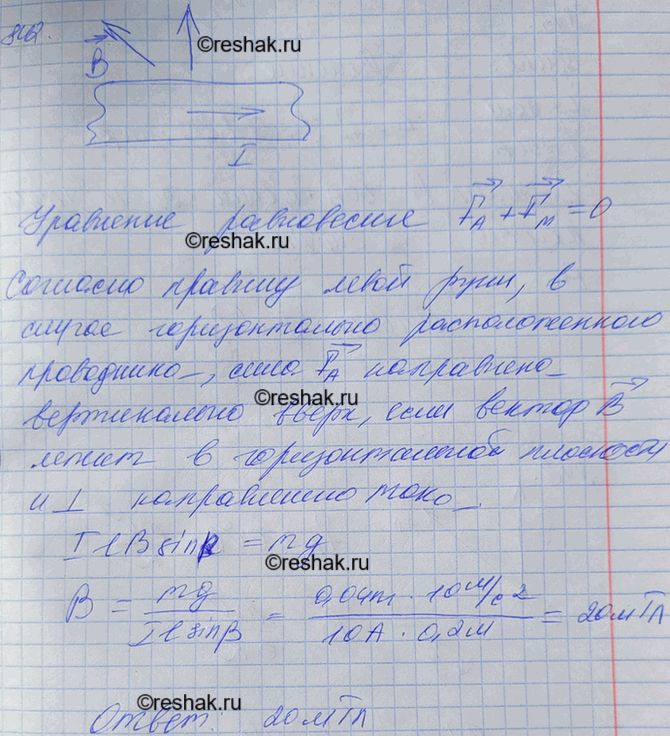 842.
©reshak.ru
B
I
Уравнение равновесие F_A + F_M = 0
©reshak.ru
Согласно правилу левой руки, в
случае горизонтально расположенного
проводника, сила F_A направлена
©reshak.ru
вертикально вверх, если вектор B
лежит в горизонтальной плоскости
и ⊥ направлению тока.
I l B sin β = mg
B = mg / I l sin β = 0,04кг · 10 м/с² / 10 А · 0,2м = 20 мТл
©reshak.ru
Ответ: 20 мТл